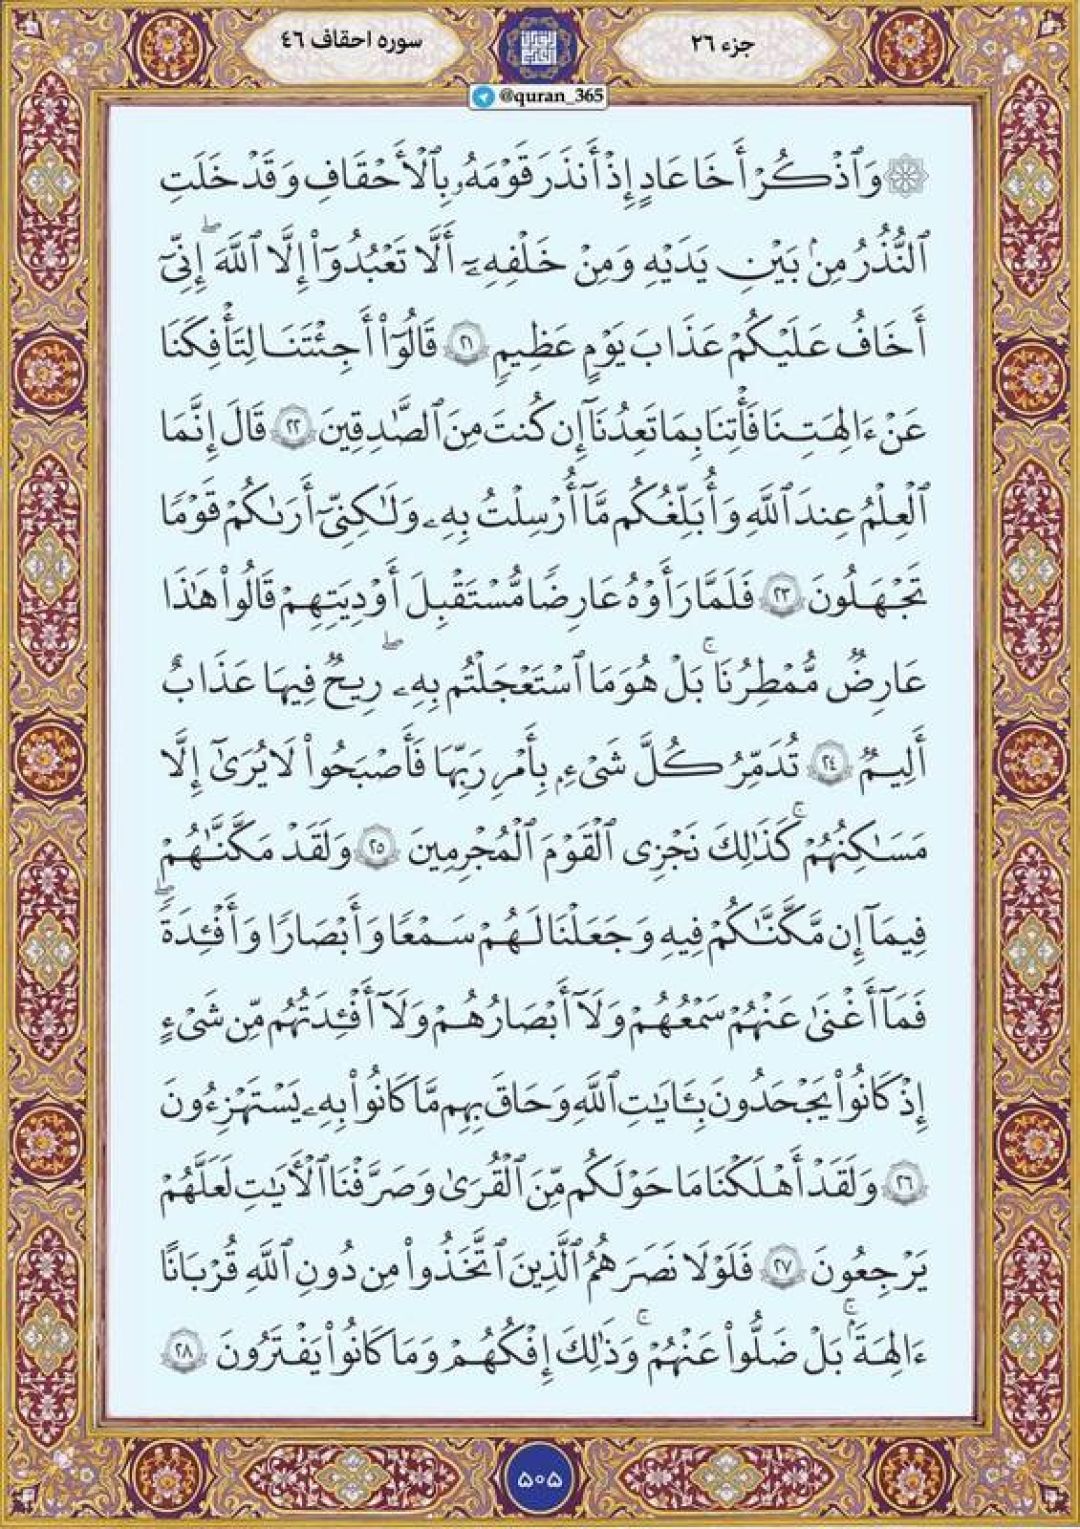 جزء ۲۶
سوره احقاف ۴۶
@quran_365
۞ وَٱذۡكُرۡ أَخَا عَادٍ إِذۡ أَنذَرَ قَوۡمَهُۥ بِٱلۡأَحۡقَافِ وَقَدۡ خَلَتِ
ٱلنُّذُرُ مِنۢ بَيۡنِ يَدَيۡهِ وَمِنۡ خَلۡفِهِۦٓ أَلَّا تَعۡبُدُوٓاْ إِلَّا ٱللَّهَۖ إِنِّيٓ
أَخَافُ عَلَيۡكُمۡ عَذَابَ يَوۡمٍ عَظِيمٖ ٢١ قَالُوٓاْ أَجِئۡتَنَا لِتَأۡفِكَنَا
عَنۡ ءَالِهَتِنَا فَأۡتِنَا بِمَا تَعِدُنَآ إِن كُنتَ مِنَ ٱلصَّٰدِقِينَ ٢٢ قَالَ إِنَّمَا
ٱلۡعِلۡمُ عِندَ ٱللَّهِ وَأُبَلِّغُكُم مَّآ أُرۡسِلۡتُ بِهِۦ وَلَٰكِنِّيٓ أَرَىٰكُمۡ قَوۡمٗا
تَجۡهَلُونَ ٢٣ فَلَمَّا رَأَوۡهُ عَارِضٗا مُّسۡتَقۡبِلَ أَوۡدِيَتِهِمۡ قَالُواْ هَٰذَا
عَارِضٞ مُّمۡطِرُنَاۚ بَلۡ هُوَ مَا ٱسۡتَعۡجَلۡتُم بِهِۦۖ رِيحٞ فِيهَا عَذَابٌ
أَلِيمٞ ٢٤ تُدَمِّرُ كُلَّ شَيۡءِۭ بِأَمۡرِ رَبِّهَا فَأَصۡبَحُواْ لَا يُرَىٰٓ إِلَّا
مَسَٰكِنُهُمۡۚ كَذَٰلِكَ نَجۡزِي ٱلۡقَوۡمَ ٱلۡمُجۡرِمِينَ ٢٥ وَلَقَدۡ مَكَّنَّٰهُمۡ
فِيمَآ إِن مَّكَّنَّٰكُمۡ فِيهِ وَجَعَلۡنَا لَهُمۡ سَمۡعٗا وَأَبۡصَٰرٗا وَأَفۡـِٔدَةٗۖ
فَمَآ أَغۡنَىٰ عَنۡهُمۡ سَمۡعُهُمۡ وَلَآ أَبۡصَٰرُهُمۡ وَلَآ أَفۡـِٔدَتُهُم مِّن شَيۡءٍ
إِذۡ كَانُواْ يَجۡحَدُونَ بِـَٔايَٰتِ ٱللَّهِ وَحَاقَ بِهِم مَّا كَانُواْ بِهِۦ يَسۡتَهۡزِءُونَ
٢٦ وَلَقَدۡ أَهۡلَكۡنَا مَا حَوۡلَكُم مِّنَ ٱلۡقُرَىٰ وَصَرَّفۡنَا ٱلۡأٓيَٰتِ لَعَلَّهُمۡ
يَرۡجِعُونَ ٢٧ فَلَوۡلَا نَصَرَهُمُ ٱلَّذِينَ ٱتَّخَذُواْ مِن دُونِ ٱللَّهِ قُرۡبَانًا
ءَالِهَةَۢۖ بَلۡ ضَلُّواْ عَنۡهُمۡۚ وَذَٰلِكَ إِفۡكُهُمۡ وَمَا كَانُواْ يَفۡتَرُونَ ٢٨
۵۰۵